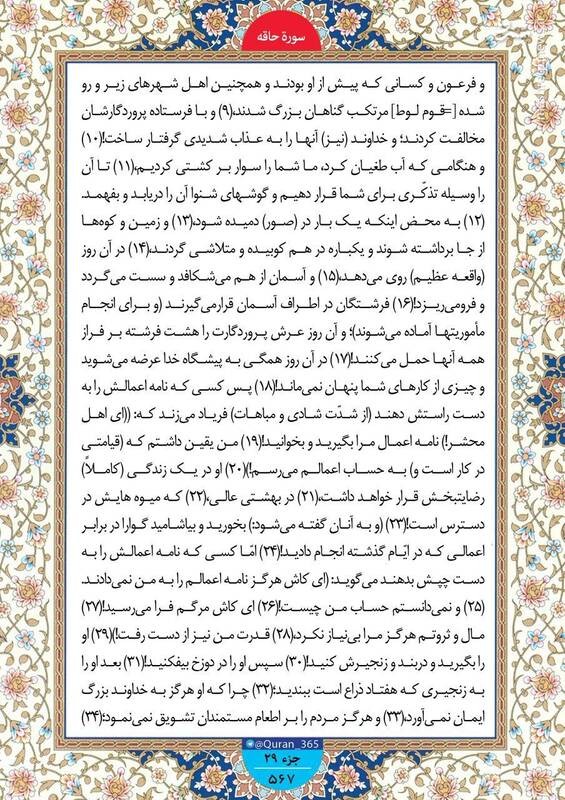 سورة حاقه
و فرعون و کسانی که پیش از او بودند و همچنین اهل شهرهای زیر و رو
شده [=قوم لوط] مرتکب گناهان بزرگ شدند،(۹) و با فرستاده پروردگارشان
مخالفت کردند؛ و خداوند (نیز) آنها را به عذاب شدیدی گرفتار ساخت!(۱۰)
و هنگامی که آب طغیان کرد، ما شما را سوار بر کشتی کردیم،(۱۱) تا آن
را وسیله تذکّری برای شما قرار دهیم و گوشهای شنوا آن را دریابد و بفهمد.
(۱۲) به محض اینکه یک بار در (صور) دمیده شود،(۱۳) و زمین و کوه‌ها
از جا برداشته شوند و یکباره در هم کوبیده و متلاشی گردند،(۱۴) در آن روز
(واقعه عظیم) روی می‌دهد،(۱۵) و آسمان از هم می‌شکافد و سست می‌گردد
و فرومی‌ریزد!(۱۶) فرشتگان در اطراف آسمان قرارمی‌گیرند (و برای انجام
مأموریتها آماده می‌شوند)؛ و آن روز عرش پروردگارت را هشت فرشته بر فراز
همه آنها حمل می‌کنند!(۱۷) در آن روز همگی به پیشگاه خدا عرضه می‌شوید
و چیزی از کارهای شما پنهان نمی‌ماند!(۱۸) پس کسی که نامه اعمالش را به
دست راستش دهند (از شدّت شادی و مباهات) فریاد می‌زند که: ((ای اهل
محشر!) نامه اعمال مرا بگیرید و بخوانید!(۱۹) من یقین داشتم که (قیامتی
در کار است و) به حساب اعمالم می‌رسم!)(۲۰) او در یک زندگی (کاملاً)
رضایتبخش قرار خواهد داشت،(۲۱) در بهشتی عالی،(۲۲) که میوه هایش در
دسترس است!(۲۳) (و به آنان گفته می‌شود:) بخورید و بیاشامید گوارا در برابر
اعمالی که در ایّام گذشته انجام دادید!(۲۴) امّا کسی که نامه اعمالش را به
دست چپش بدهند می‌گوید: (ای کاش هرگز نامه اعمالم را به من نمی‌دادند.
(۲۵) و نمی‌دانستم حساب من چیست!(۲۶) ای کاش مرگم فرا می‌رسید!(۲۷)
مال و ثروتم هرگز مرا بی‌نیاز نکرد،(۲۸) قدرت من نیز از دست رفت!)(۲۹) او
را بگیرید و دربند و زنجیرش کنید!(۳۰) سپس او را در دوزخ بیفکنید!(۳۱) بعد او را
به زنجیری که هفتاد ذراع است ببندید؛(۳۲) چرا که او هرگز به خداوند بزرگ
ایمان نمی‌آورد،(۳۳) و هرگز مردم را بر اطعام مستمندان تشویق نمی‌نمود؛(۳۴)
@Quran_365
جزء ۲۹
۵۶۷